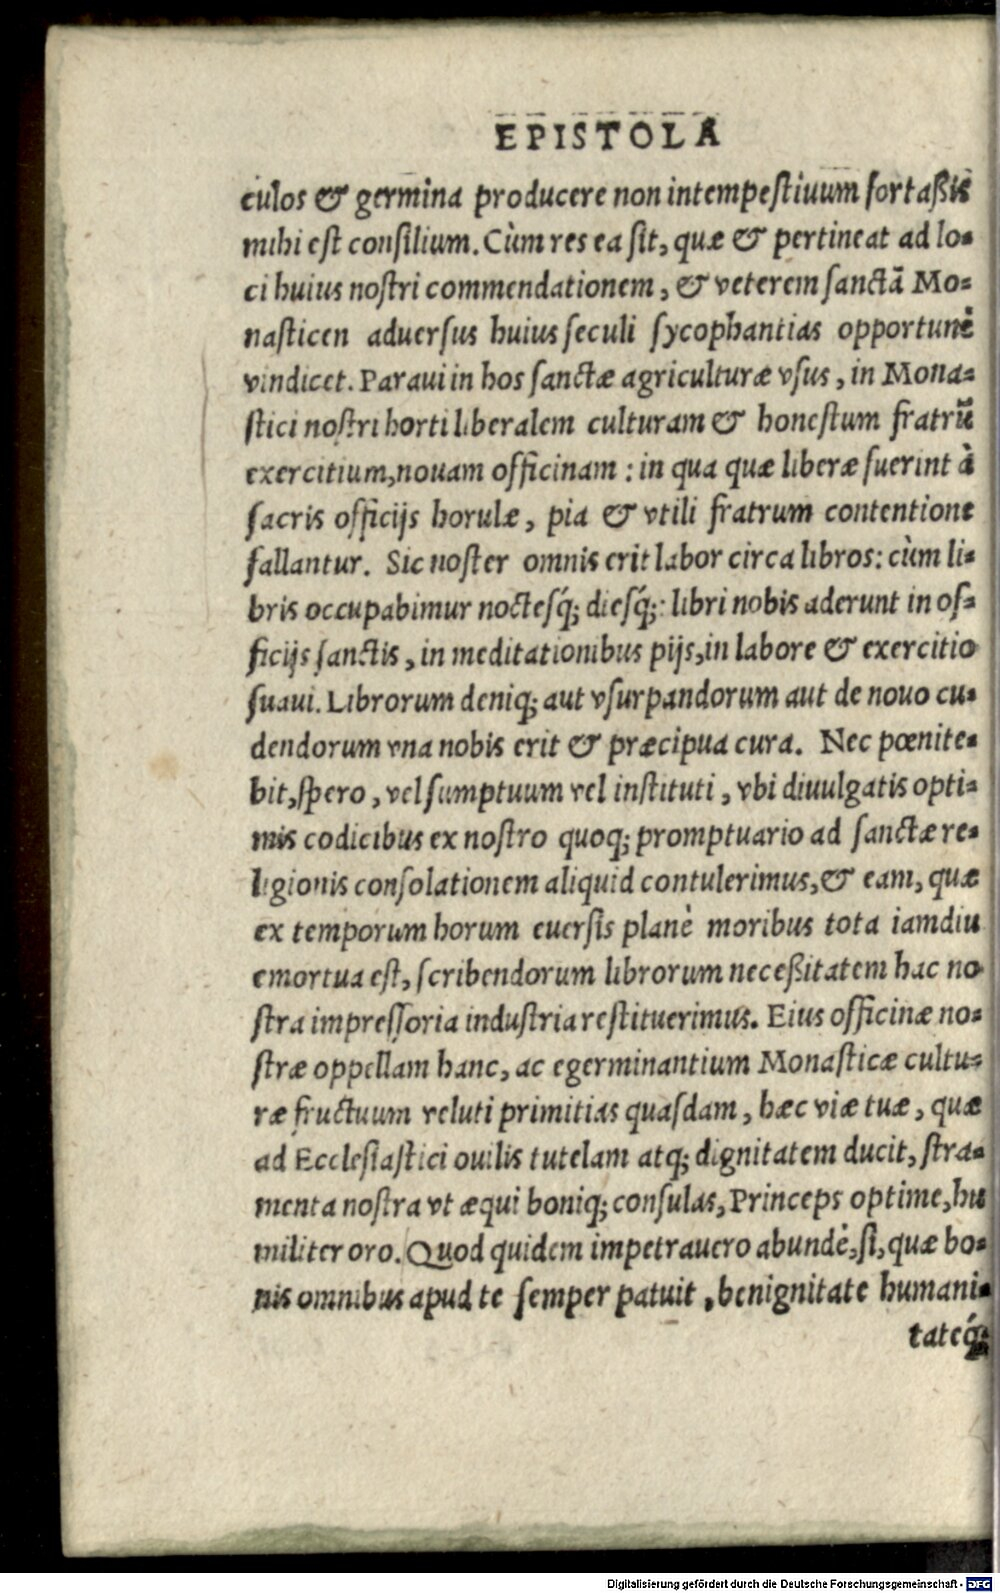 EPISTOLA
culos & germina producere non intempestiuum fortaßis
mihi est consilium. Cùm res ea sit, quæ & pertineat ad lo-
ci huius nostri commendationem, & veterem sanctā Mo-
nasticen aduersus huius seculi sycophantias opportunè
vindicet. Paraui in hos sanctæ agriculturæ vsus, in Mona-
stici nostri horti liberalem culturam & honestum fratrū
exercitium, nouam officinam: in qua quæ liberæ fuerint à
sacris officijs horulæ, pia & vtili fratrum contentione
fallantur. Sic noster omnis erit labor circa libros: cùm li-
bris occupabimur noctesq́; diesq́;: libri nobis aderunt in of-
ficijs sanctis, in meditationibus pijs, in labore & exercitio
suaui. Librorum deniq; aut vsurpandorum aut de nouo cu-
dendorum vna nobis erit & præcipua cura. Nec pœnite-
bit, spero, vel sumptuum vel instituti, vbi diuulgatis opti-
mis codicibus ex nostro quoq; promptuario ad sanctæ re-
ligionis consolationem aliquid contulerimus, & eam, quæ
ex temporum horum euersis planè moribus tota iamdiu
emortua est, scribendorum librorum neceßitatem hac no
stra impressoria industria restituerimus. Eius officinæ no-
stræ oppellam hanc, ac egerminantium Monasticæ cultu-
ræ fructuum veluti primitias quasdam, hæc viæ tuæ, quæ
ad Ecclesiastici ouilis tutelam atq; dignitatem ducit, stra-
menta nostra vt æqui boniq; consulas, Princeps optime, hu
militer oro. Quod quidem impetrauero abundè, si, quæ bo-
nis omnibus apud te semper patuit, benignitate humani-
tateq́;
Digitalisierung gefördert durch die Deutsche Forschungsgemeinschaft - DFG